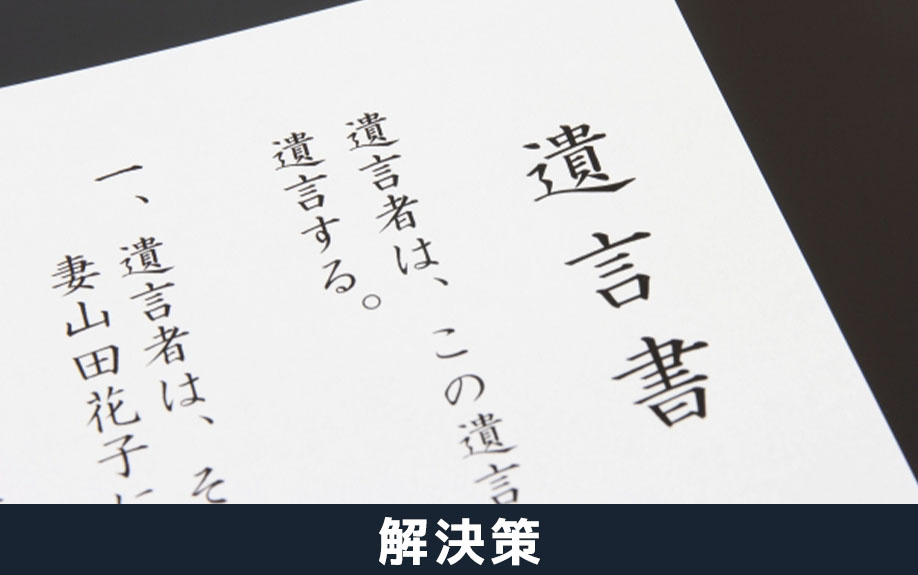 遺言書
遺言者は、この遺言
遺言する。
一、遺言者は、そ
妻山田花子に
解決策